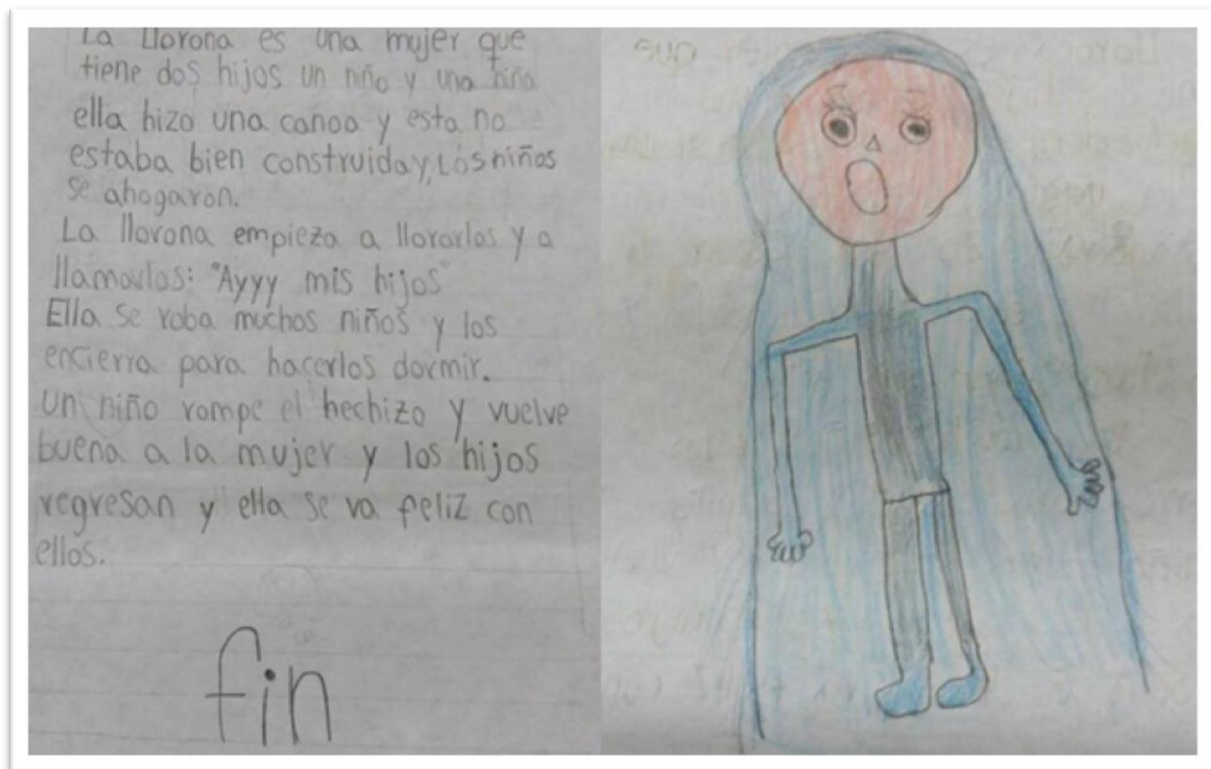 La Llorona es una mujer que
tiene dos hijos un niño y una niña
ella hizo una canoa y esta no
estaba bien construida y, Los niños
se ahogaron.
La llorona empieza a llorarlos y a
llamarlos: "Ayyy mis hijos"
Ella se roba muchos niños y los
encierra para hacerlos dormir.
un niño rompe el hechizo y vuelve
buena a la mujer y los hijos
regresan y ella se va feliz con
ellos.
fin